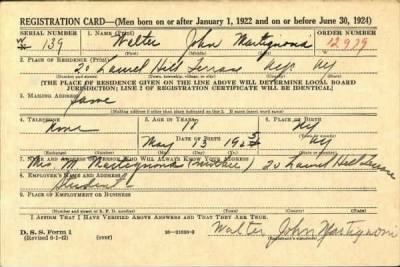 REGISTRATION CARD—(Men born on or after January 1, 1922 and on or before June 30, 1924)
SERIAL NUMBER 1. NAME (Print) ORDER NUMBER
W 139 Walter John Martignoni 12979
2. PLACE OF RESIDENCE (Print)
20 Laurel Hill Terrace NYC NY
[THE PLACE OF RESIDENCE GIVEN ON THE LINE ABOVE WILL DETERMINE LOCAL BOARD
JURISDICTION; LINE 2 OF REGISTRATION CERTIFICATE WILL BE IDENTICAL]
3. MAILING ADDRESS
Same
[Mailing address if other than place indicated on line 2. If same insert word same]
4. TELEPHONE 5. AGE IN YEARS 6. PLACE OF BIRTH
None 18 NY
DATE OF BIRTH
May 13 NY
7. NAME AND ADDRESS OF PERSON WHO WILL ALWAYS KNOW YOUR ADDRESS
Mrs. M. Martignoni (mother) 20 Laurel Hill Terrace
8. EMPLOYER'S NAME AND ADDRESS
Student
9. PLACE OF EMPLOYMENT OR BUSINESS
I AFFIRM THAT I HAVE VERIFIED ABOVE ANSWERS AND THAT THEY ARE TRUE.
D. S. S. Form 1
(Revised 6-1-42) (over) Walter John Martignoni